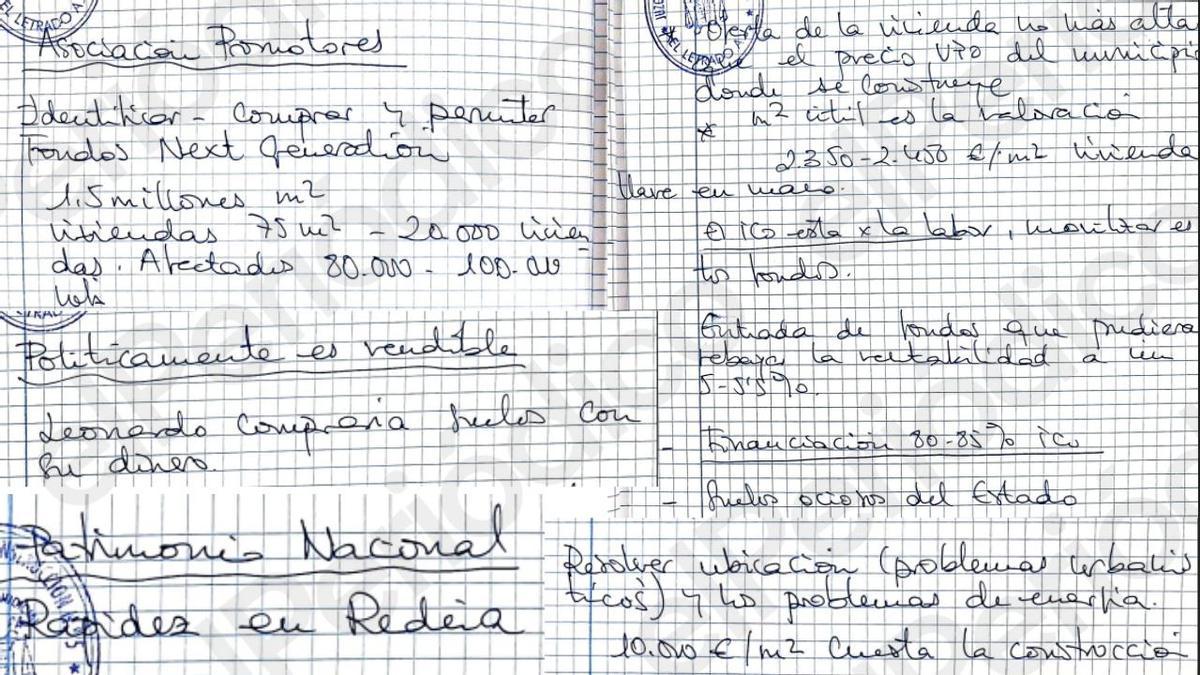 EL LETRADO A
Asociación Promotores
Identificar - comprar y permutar
Fondos Next Generation
1.5 millones m2
viviendas 75 m2 - 20.000 vivien
das. Afectados 80.000 - 100.000
Politicamente es vendible
Leonardo compraria suelos con
su dinero.
Patrimonio Nacional
Rapidez en Redeia
EL LETRADO A
* Oferta de la vivienda no más alta
que el precio VPO del municipio
donde se construye
* m2 útil es la valoración
2.350-2.450 €/m2 vivienda
llave en mano.
El ICO esta x la labor, movilizar es
tos fondos.
Entrada de fondos que pudiera
rebajar la rentabilidad a un
5-5'5%.
- Financiación 80-85% ICO
- Suelos ociosos del Estado
Resolver ubicación (problemas urbanis
ticos) y los problemas de energía.
10.000 €/m2 cuesta la construcción
elPeriódico